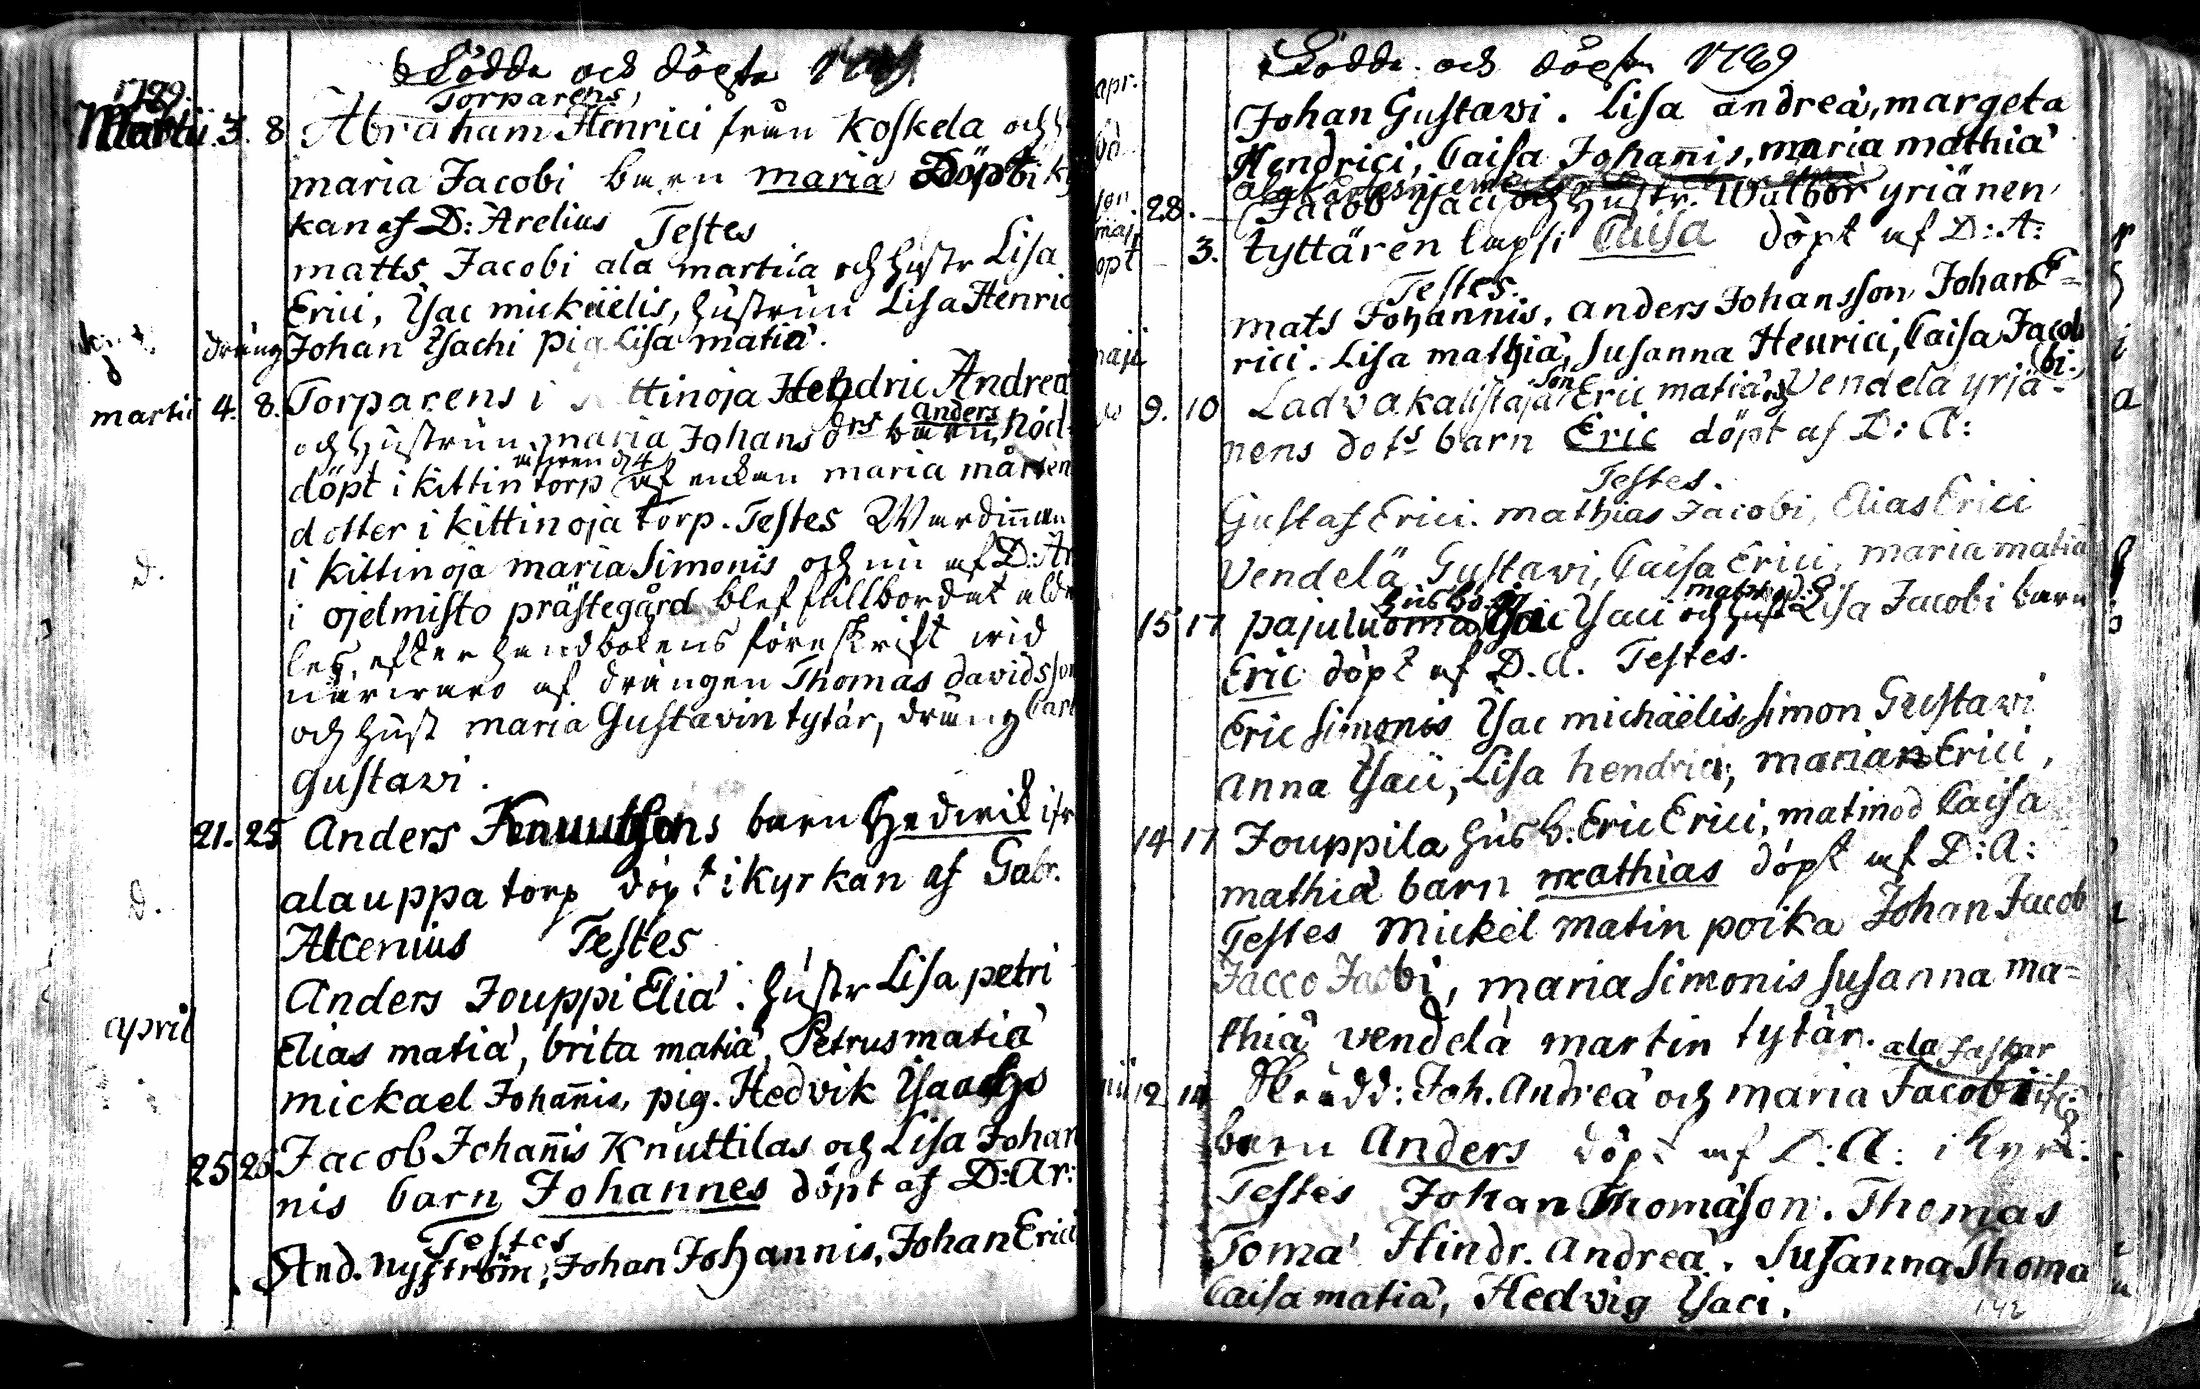 Födde och döpte
1789.
Torparens,
Martii 3. 8 Abraham Henrici från Koskela och
maria Jacobi barn maria Döpt i ky
kan af D: Arelius Testes
matts Jacobi ala martila och hustr Lisa
Erici, Ysac mickäelis, hustrun Lisa Henric
dräng Johan Ysachi pig Lisa matiä.
martii 4. 8. Torparens i ttinoja Hendric Andreä
anders
och hustrun maria Johans drs barn, nöd-
döpt i kittin torp af enkan maria mårten
dotter i kittinoja torp. Testes Wärdinnan
i kittinoja maria Simonis och nu af D: Ar
D. i ojelmisto prästegård blef fullbordat alde
les, efter handbokens föreskrift wid
närwaro af drängen Thomas davidsson
och hust maria Gustavin tytär, dräng Carl
gustavi.
21. 25 Anders Knuutsons barn Hedwik ifr
alauppa torp döpt i kyrkan af Gabr.
D.
Alcenius Testes
Anders Jouppi Eliä. hustr Lisa petri
april Elias matiä, brita matiä, Petrus matiä
mickael Johañis, pig. Hedvik Ysaachs
25 26 Jacob Johañis Knuttilas och Lisa Johan
nis barn Johannes döpt af D: Ar:
Testes
And. nyström, Johan Johannis, Johan Erici
Födde och döpte 1789
apr. Johan Gustavi. Lisa andreä, margeta
Hendrici, Caisa Johañis, maria mathiä
28. Jacob Ysaci och hustr. Walbor yriänen
3. tyttären lapsi Caisa döpt af D: A:
Testes.
mats Johannis, anders Johansson, Johan E=
maji rici. Lisa mathiä, Susanna Henrici, Caisa Jacob
bi.
son
9. 10 Ladvakalistaja Eric matiä och Vendela yrjä-
nens dots barn Eric döpt af D: A:
Testes.
Gustaf Erici. mathias Jacobi, Elias Erici
Vendelä Gustavi, Caisa Erici, maria matiä
husb.
15 17 pajuluoma Ysac Ysaci och hust Lisa Jacobi barn
Eric döpt af D. A. Testes.
Eric Simonis Ysac michäelis, Simon Gustavi
anna Ysaci, Lisa hendrici, maria Erici,
14 17 Jouppila husb. Eric Erici, matmod Caisa
mathiä barn mathias döpt af D: A:
Testes Mickel matin poika Johan Jacob
Jacco Jacobi, maria Simonis Susanna ma=
thiä vendelä martin tytär.
ala Jaskar
12 14 Skrädd: Joh. Andreä och maria Jacobi
barn Anders döpt af D: A: i kyrk:
Testes Johan Thomäson. Thomas
Tomä Hindr. andreä. Susanna Thoma
Caisa matiä, Hedvig Ysaci.
142